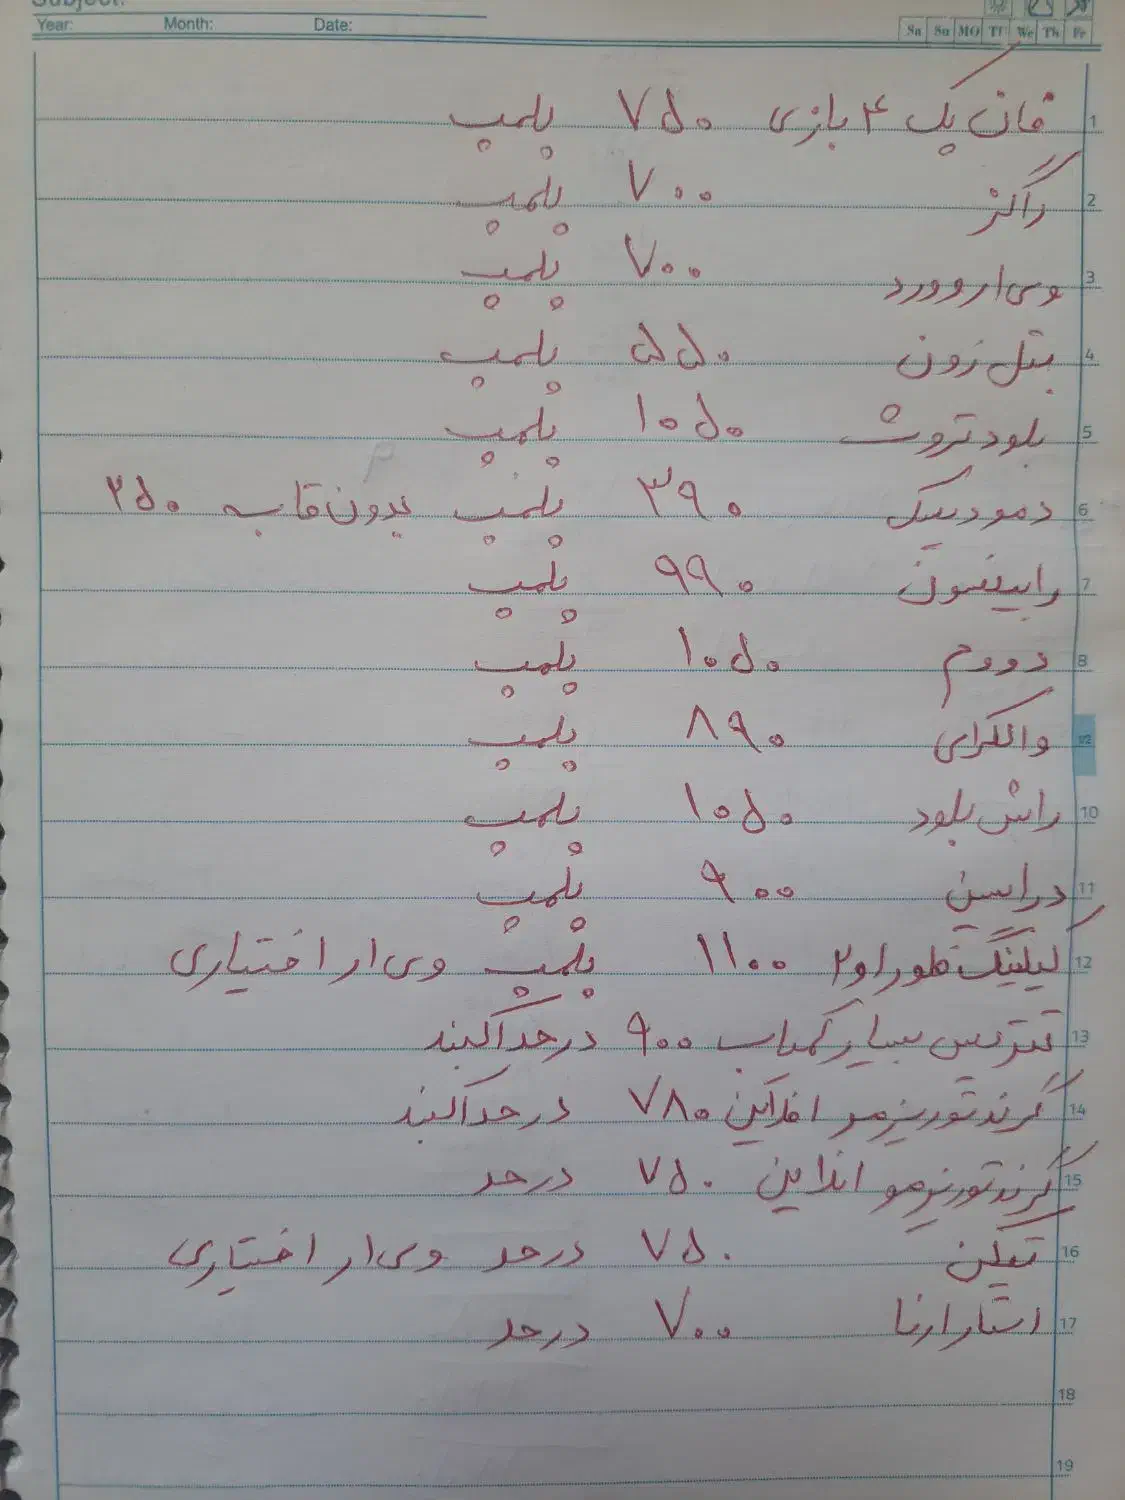 Subject:
Year: Month: Date: Sa Su MO TU We Th Fr
1 فان پک ۴ بازی ۷۵۰ پلمپ
2 راگز ۷۰۰ پلمپ
3 وی ار وورد ۷۰۰ پلمپ
4 بتل زون ۵۵۰ پلمپ
5 بلود تروث ۱۰۵۰ پلمپ
6 دمو دیسک ۳۹۰ پلمپ بدون قاب ۲۵۰
7 رابینسون ۹۹۰ پلمپ
8 دووم ۱۰۵۰ پلمپ
وال کرای ۸۹۰ پلمپ
10 راش بلود ۱۰۵۰ پلمپ
11 درایسن ۹۰۰ پلمپ
12 کیلینگ فلور ۱و۲ ۱۱۰۰ پلمپ وی ار اختیاری
13 تتریس بسیار کمیاب ۹۰۰ در حد آکبند
14 گرند توریزمو افلاین ۷۸۰ در حد اکبند
15 گرند توریزمو انلاین ۷۵۰ در حد
16 تیکن ۷۵۰ در حد وی ار اختیاری
17 استار ارنا ۷۰۰ در حد
18
19